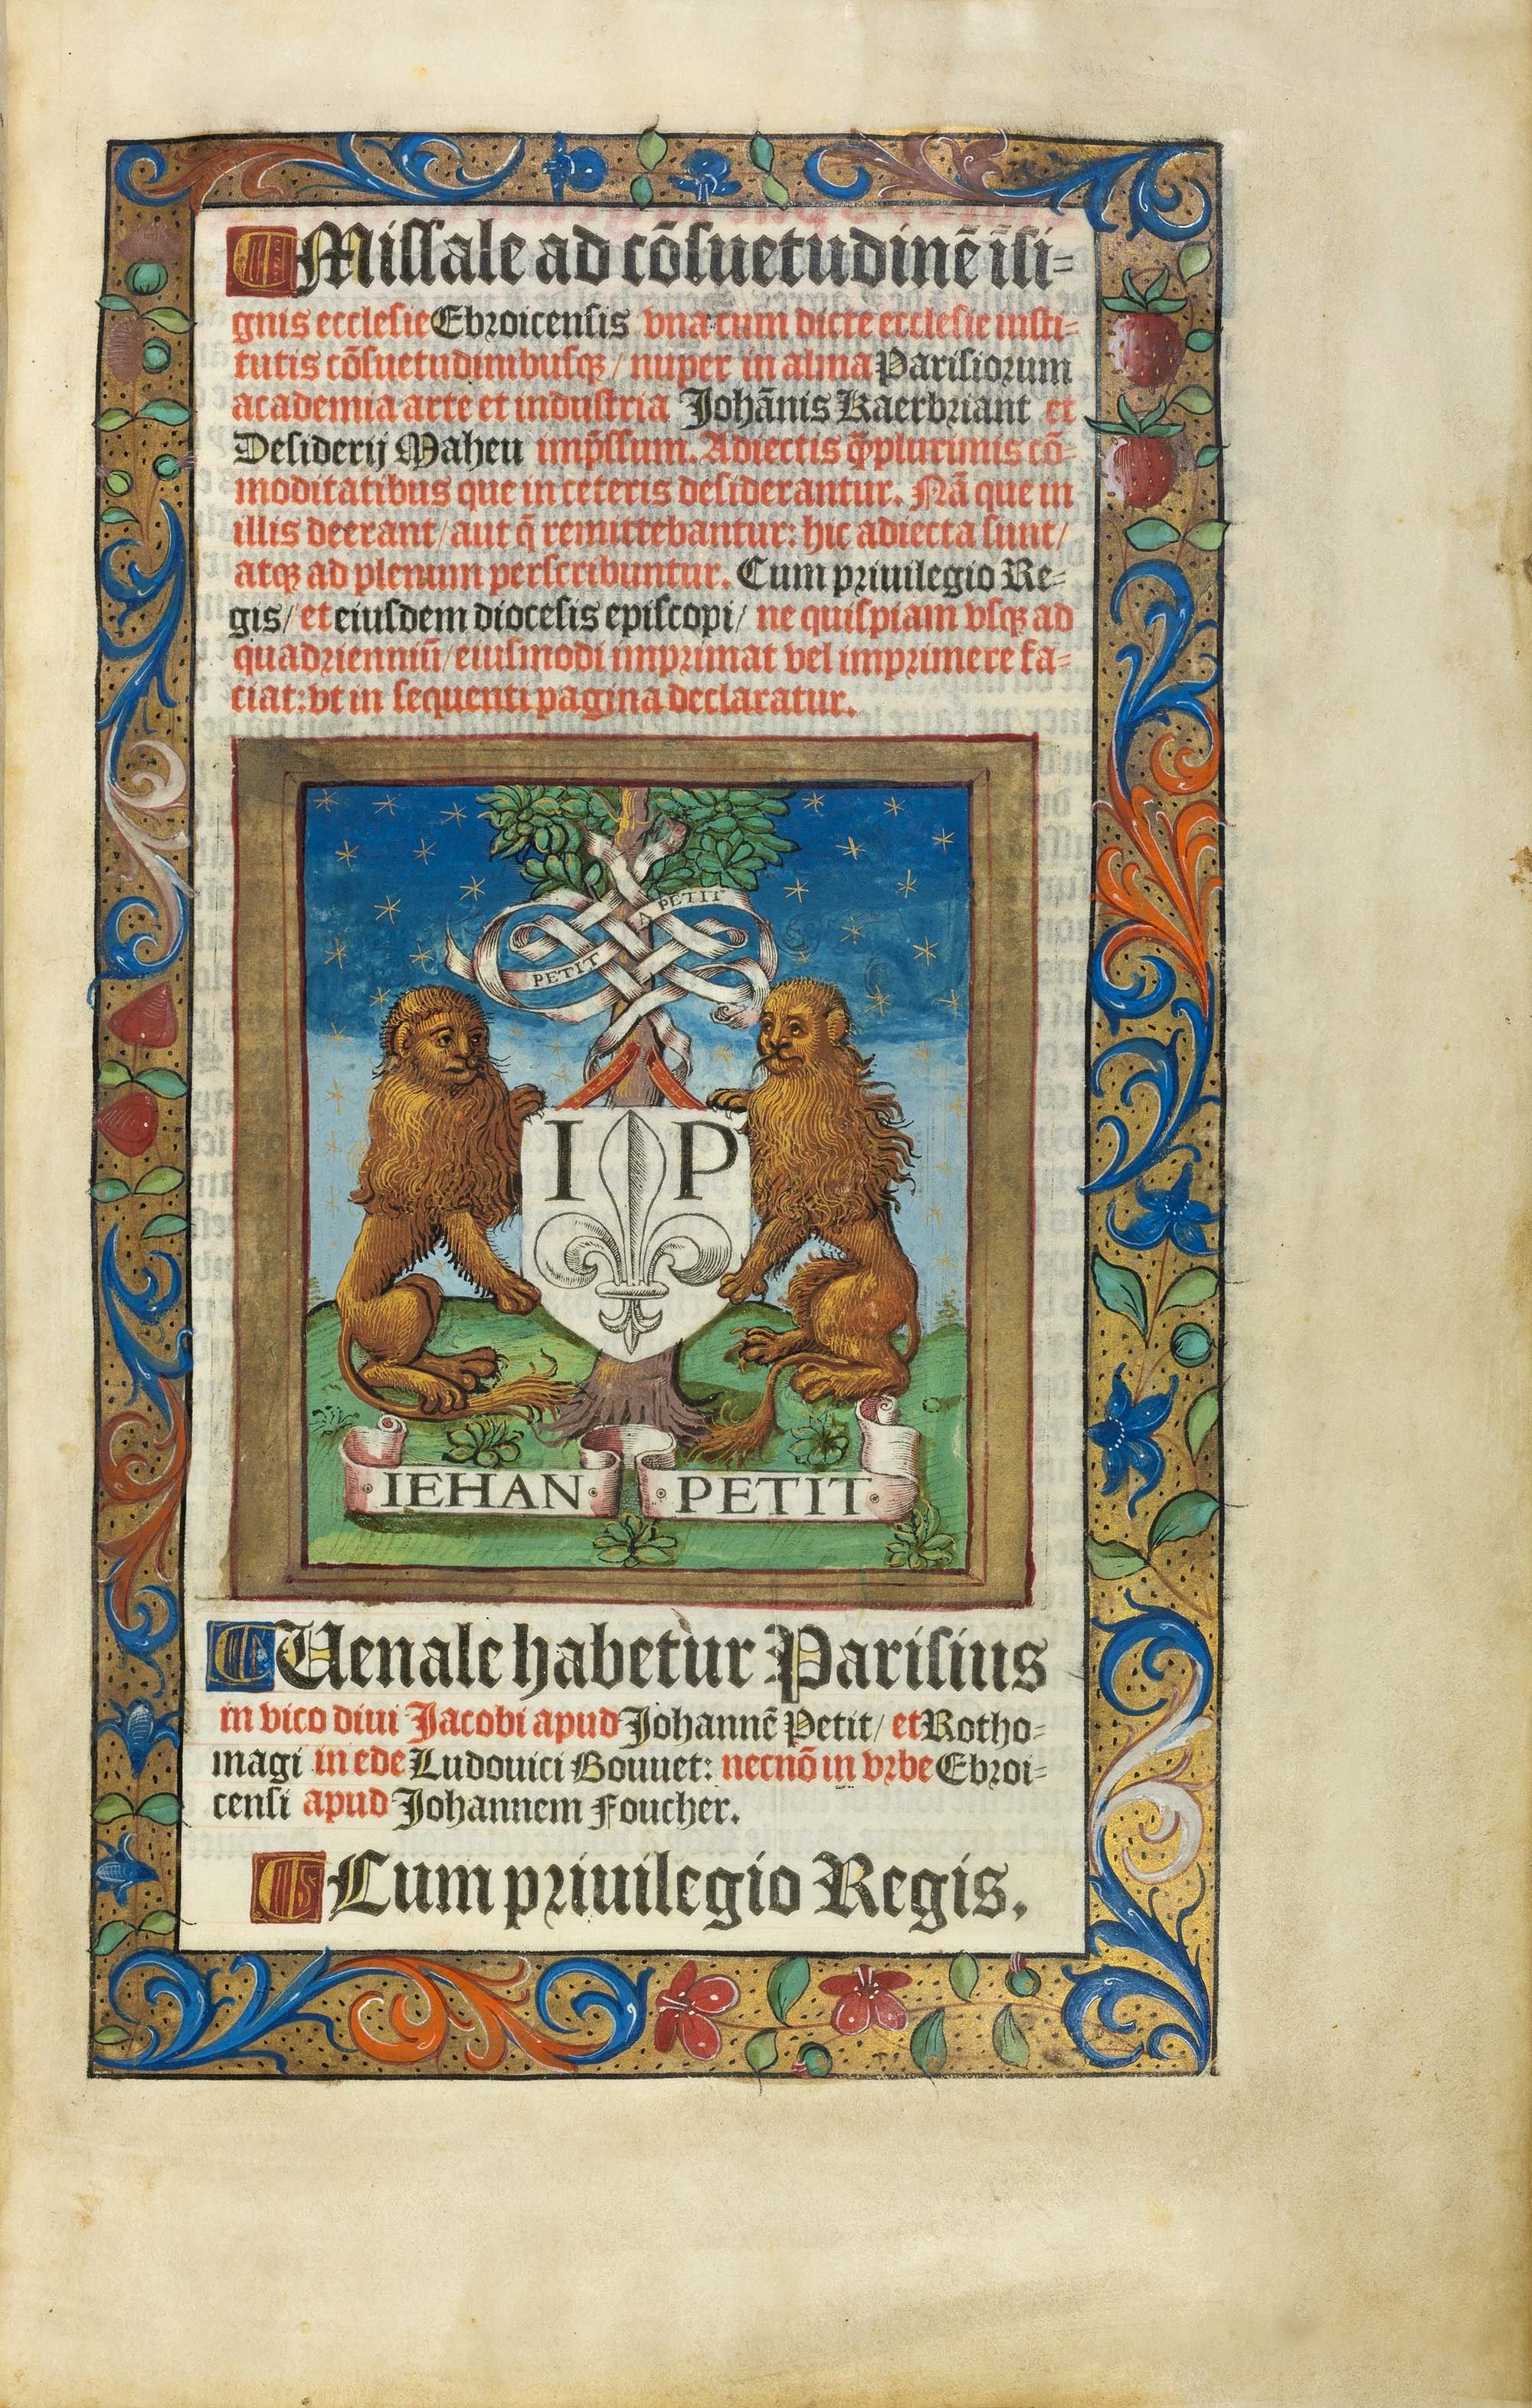 Missale ad cōsuetudinē īsi=
gnis ecclesie Ebroicensis vna cum dicte ecclesie insti=
tutis cōsuetudinibusqꝫ / nuper in alma Parisiorum
academia arte et industria Johānis Kaerbriant et
Desiderij Maheu imp̄ssum. Adiectis q̄plurimis cō=
moditatibus que in ceteris desiderantur. Nā que in
illis deerant / aut q̄ remittebantur: hic adiecta sunt /
atqꝫ ad plenum perscribuntur. Cum priuilegio Re=
gis / et eiusdem diocesis episcopi / ne quispiam vsqꝫ ad
quadrienniū / eiusmodi imprimat vel imprimere fa=
ciat: vt in sequenti pagina declaratur.
A PETIT
PETIT
I P
IEHAN PETIT
Uenale habetur Parisius
in vico diui Jacobi apud Johannē Petit / et Rotho=
magi in ede Ludouici Bouuet: necnō in vrbe Ebroi=
censi apud Johannem Foucher.
Cum priuilegio Regis.